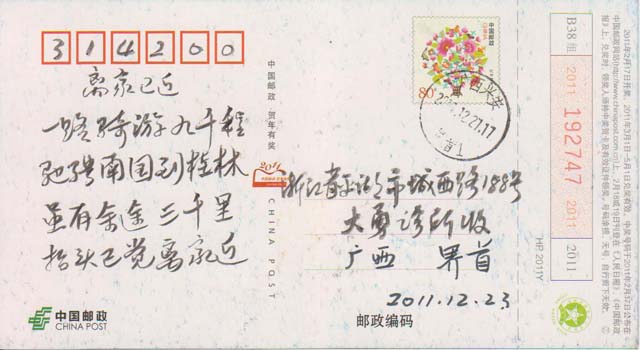 314200
离家已近
一路骑游九千程
驰骋南国到桂林
虽有余途三千里
抬头已觉离家近
中国邮政
CHINA POST
中国邮政 贺年有奖
2011
CHINA POST
中国邮政
80分
浙江省平湖市城西路188号
大勇诊所收
广西 界首
2011.12.23
邮政编码
HP 2011Y
B38 组
2011
192747
2011
2011